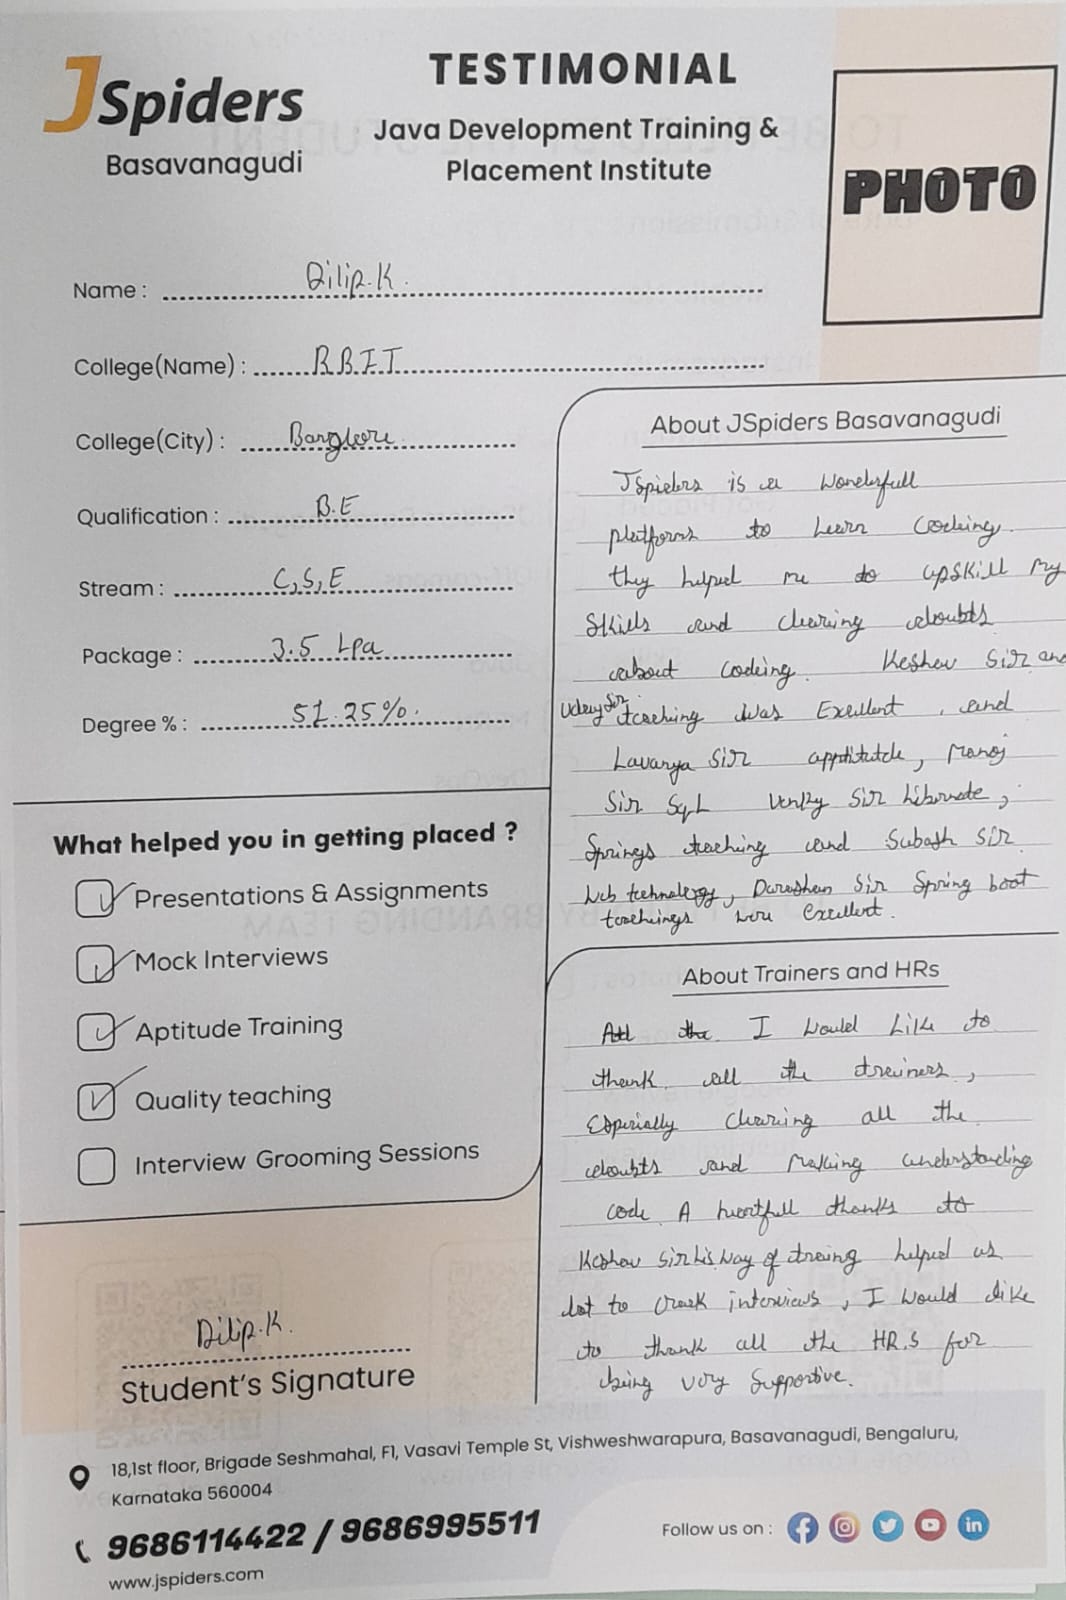 JSpiders
Basavanagudi
TESTIMONIAL
Java Development Training &
Placement Institute
PHOTO
Name : Dilip.K.
College(Name) : RBIT
College(City) : Banglore
Qualification : B.E
Stream : C,S,E
Package : 3.5 Lpa
Degree % : 51.25%.
What helped you in getting placed ?
Presentations & Assignments
Mock Interviews
Aptitude Training
Quality teaching
Interview Grooming Sessions
Dilip.K.
Student's Signature
About JSpiders Basavanagudi
JSpiders is a Wonderfull
platforms to learn Codeing.
they helped me to upskill my
Skills and clearing doubts
about codeing. Keshav Sir and
Uday Sir teaching was Exellent, and
Lavanya Sir apptitutde, Manoj
Sir SqL Venky Sir hibernate,
Springs teaching and Subash Sir
Web technology, Darshan Sir Spring boot
teachings were excellent.
About Trainers and HRs
All the I would like to
thank all the trainers,
Esperially clearing all the
doubts and making understanding
code. A heartfull thanks to
Keshav sir his way of traing helped us
lot to crack interviews, I would like
to thank all the HR.S for
being very Supportive.
18,1st floor, Brigade Seshmahal, F1, Vasavi Temple St, Vishweshwarapura, Basavanagudi, Bengaluru,
Karnataka 560004
9686114422 / 9686995511
www.jspiders.com
Follow us on :